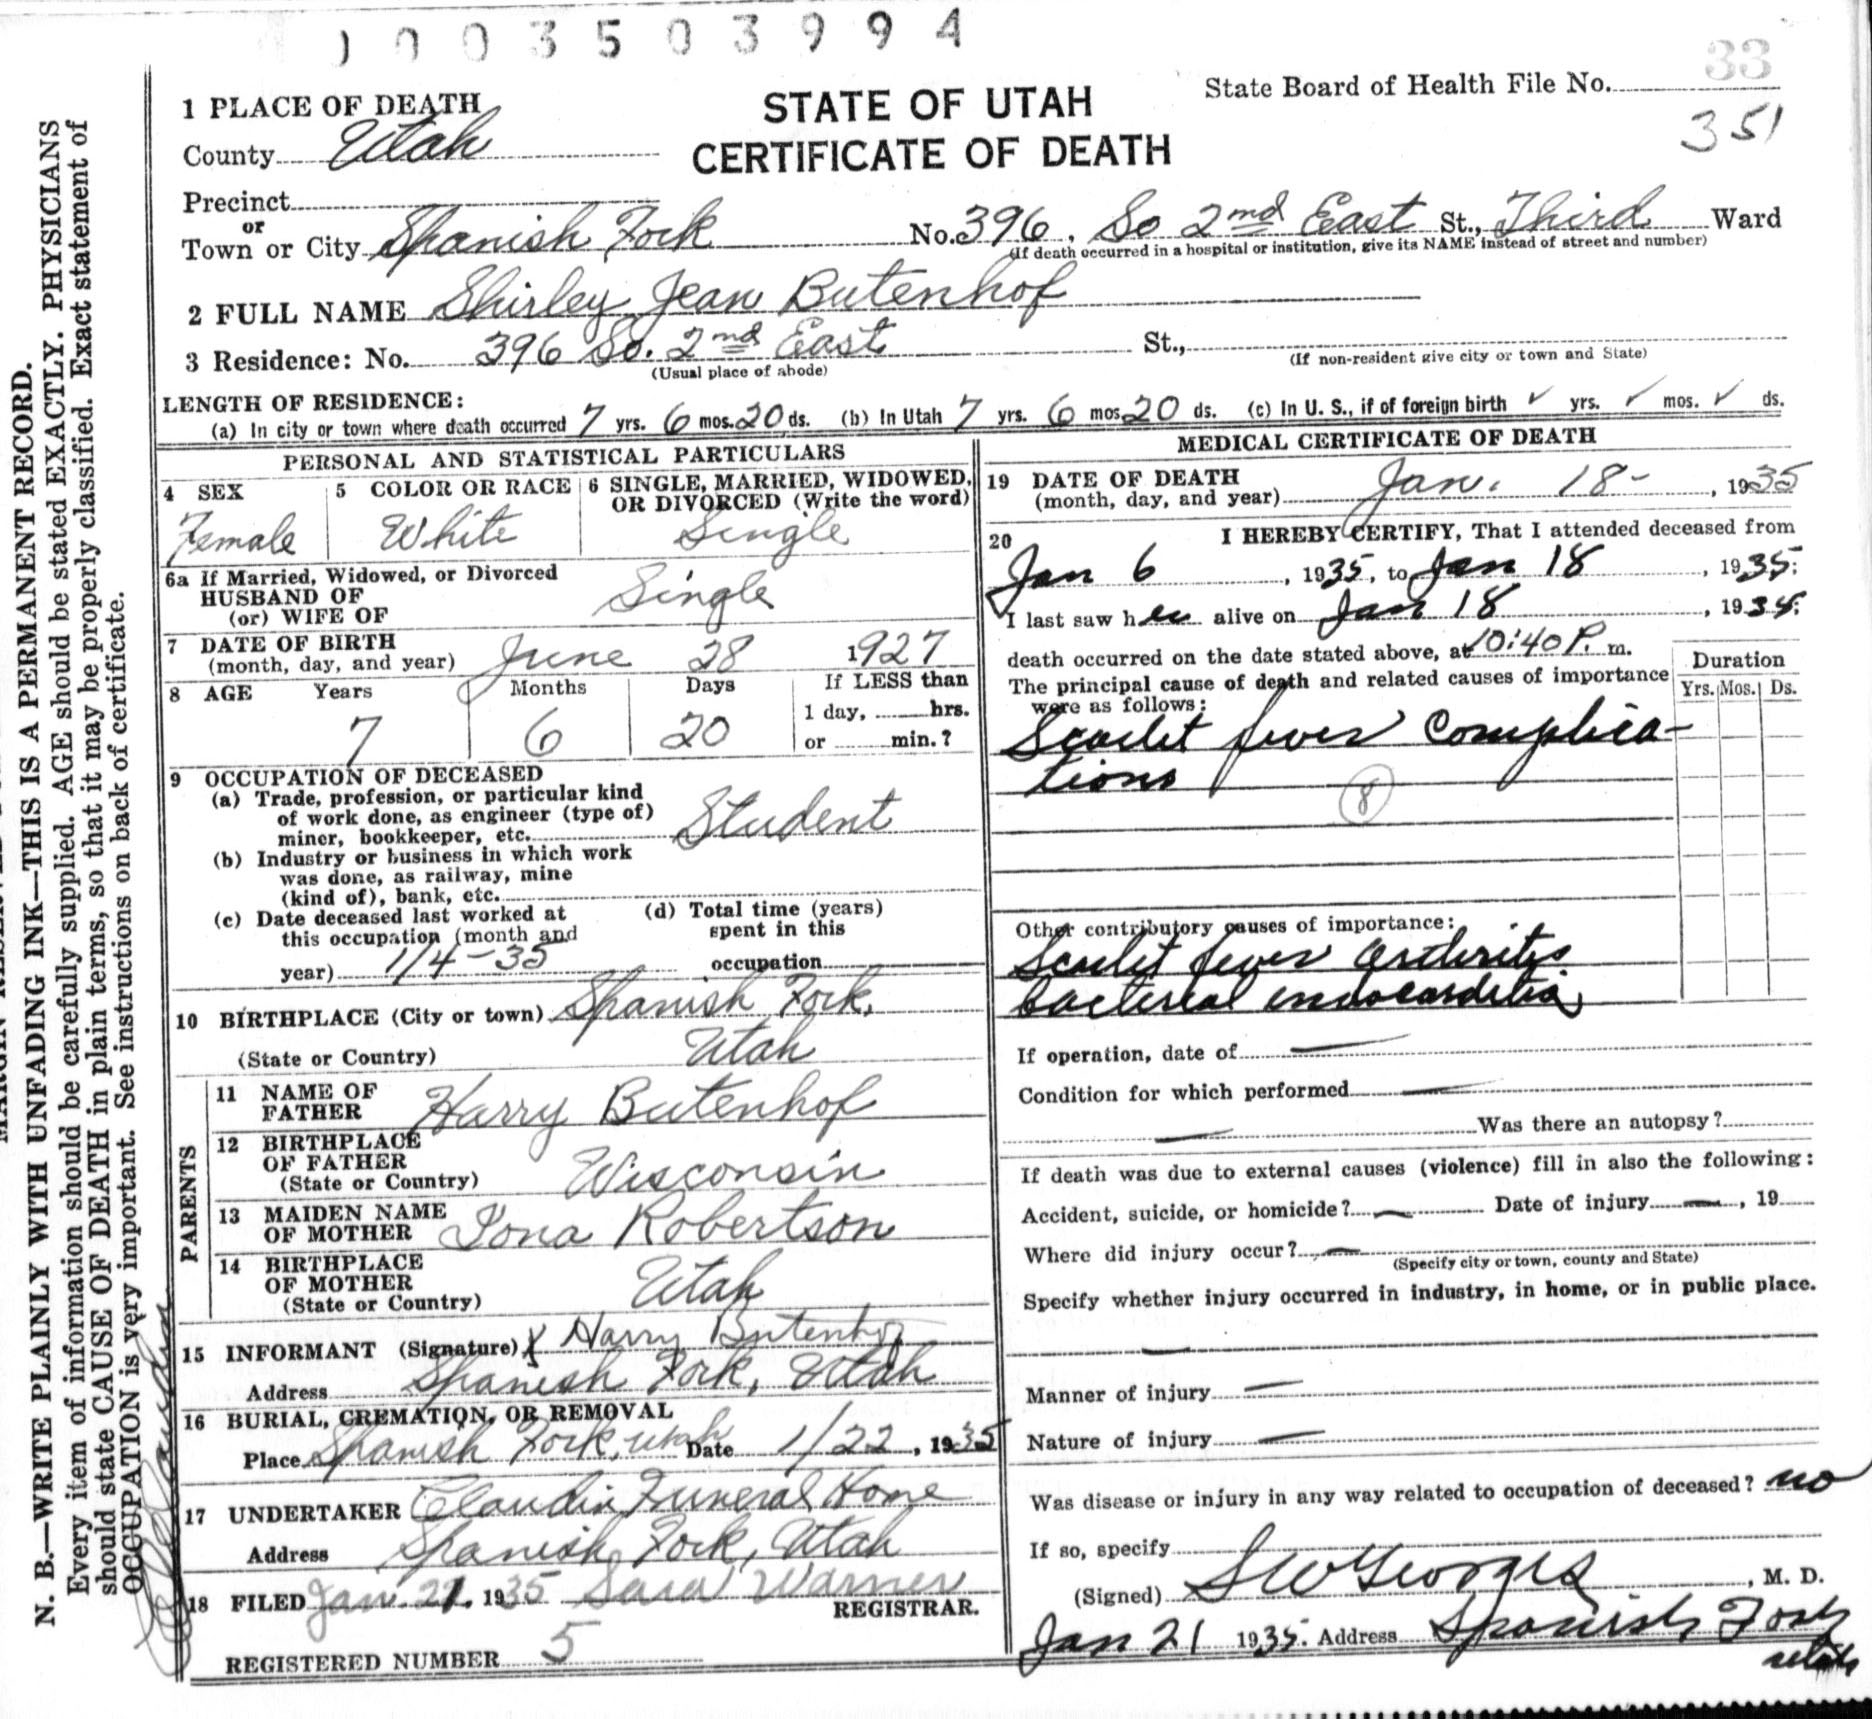 1003503994
33
State Board of Health File No.
351
STATE OF UTAH
CERTIFICATE OF DEATH
1 PLACE OF DEATH
County Utah
Precinct
or
Town or City Spanish Fork No. 396. So 2nd East St., Third Ward
(If death occurred in a hospital or institution, give its NAME instead of street and number)
2 FULL NAME Shirley Jean Butenhof
3 Residence: No. 396 So. 2nd East St.,
(Usual place of abode) (If non-resident give city or town and State)
LENGTH OF RESIDENCE:
(a) In city or town where death occurred 7 yrs. 6 mos. 20 ds. (b) In Utah 7 yrs. 6 mos 20 ds. (c) In U. S., if of foreign birth ✓ yrs. ✓ mos. ✓ ds.
PERSONAL AND STATISTICAL PARTICULARS
4 SEX
Female
5 COLOR OR RACE
White
6 SINGLE, MARRIED, WIDOWED,
OR DIVORCED (Write the word)
Single
6a If Married, Widowed, or Divorced
HUSBAND OF
(or) WIFE OF Single
7 DATE OF BIRTH
(month, day, and year) June 28 1927
8 AGE Years Months Days If LESS than
1 day, hrs.
7 6 20 or min.?
9 OCCUPATION OF DECEASED
(a) Trade, profession, or particular kind
of work done, as engineer (type of)
miner, bookkeeper, etc. Student
(b) Industry or business in which work
was done, as railway, mine
(kind of), bank, etc.
(c) Date deceased last worked at
this occupation (month and
year) 1/4-35
(d) Total time (years)
spent in this
occupation
10 BIRTHPLACE (City or town) Spanish Fork,
(State or Country) Utah
PARENTS
11 NAME OF
FATHER Harry Butenhof
12 BIRTHPLACE
OF FATHER
(State or Country) Wisconsin
13 MAIDEN NAME
OF MOTHER Iona Robertson
14 BIRTHPLACE
OF MOTHER
(State or Country) Utah
15 INFORMANT (Signature) X Harry Butenhof
Address Spanish Fork, Utah
16 BURIAL, CREMATION, OR REMOVAL
Place Spanish Fork, Utah Date 1/22, 1935
17 UNDERTAKER Claudin Funeral Home
Address Spanish Fork, Utah
18 FILED Jan. 21. 1935 Sara Warner
REGISTRAR.
REGISTERED NUMBER 5
MEDICAL CERTIFICATE OF DEATH
19 DATE OF DEATH
(month, day, and year) Jan. 18-, 1935
20 I HEREBY CERTIFY, That I attended deceased from
Jan 6, 1935, to Jan 18, 1935;
I last saw her alive on Jan 18, 1935;
death occurred on the date stated above, at 10:40 P. m.
The principal cause of death and related causes of importance
were as follows:
Duration
Yrs. Mos. Ds.
Scarlet fever Complica-
tions
8
Other contributory causes of importance:
Scarlet fever arthritis
bacterial endocarditis
If operation, date of —
Condition for which performed —
— Was there an autopsy?
If death was due to external causes (violence) fill in also the following:
Accident, suicide, or homicide? — Date of injury —, 19
Where did injury occur? —
(Specify city or town, county and State)
Specify whether injury occurred in industry, in home, or in public place.
—
Manner of injury —
Nature of injury —
Was disease or injury in any way related to occupation of deceased? no
If so, specify
(Signed) S W Georges, M. D.
Jan 21 1935. Address Spanish Fork
Utah
N. B.—WRITE PLAINLY WITH UNFADING INK—THIS IS A PERMANENT RECORD.
Every item of information should be carefully supplied. AGE should be stated EXACTLY. PHYSICIANS
should state CAUSE OF DEATH in plain terms, so that it may be properly classified. Exact statement of
OCCUPATION is very important. See instructions on back of certificate.